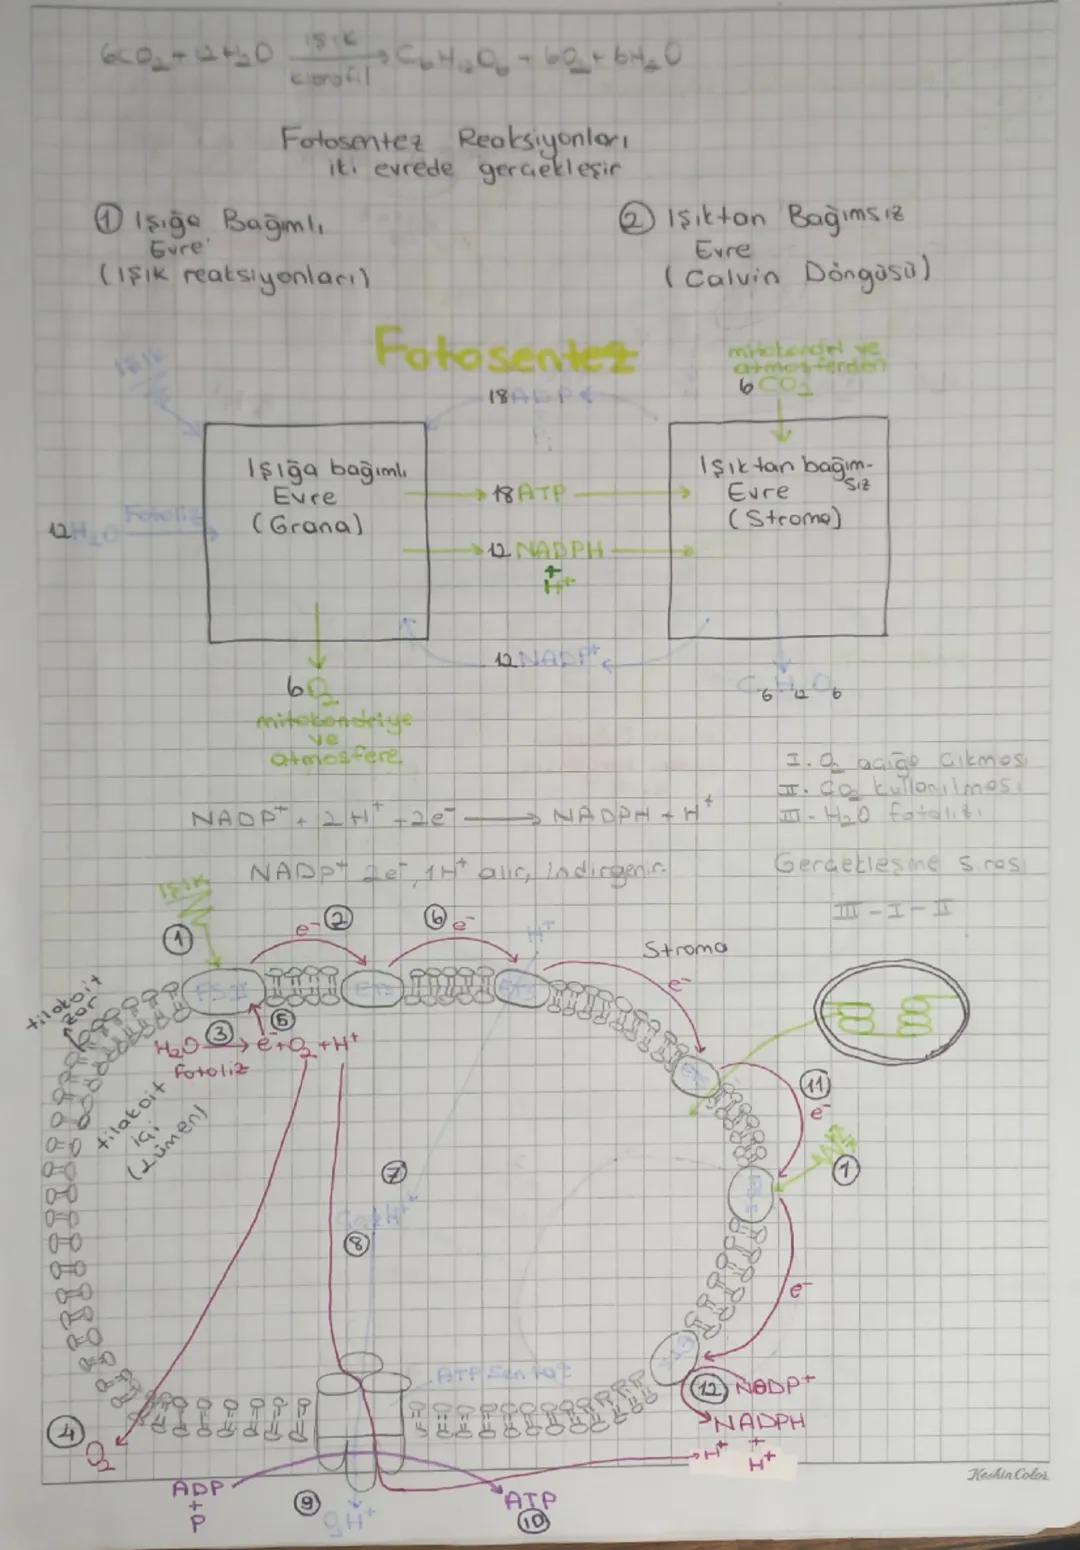 6CO₂ + 12H₂O ışık → C₆H₁₂O₆ + 6O₂ + 6H₂O
klorofil
Fotosentez Reaksiyonları
iki evrede gerçekleşir
① Işığa Bağımlı
Evre
(Işık reaksiyonları)
② Işıktan Bağımsız
Evre
(Calvin Döngüsü)
Fotosentez
Işık
mitokondri ve
atmosferden
6CO₂
18ADP
Işığa bağımlı
Evre
(Grana)
Işıktan bağım-
sız
Evre
(Stroma)
18ATP
12H₂O Fotoliz
12 NADPH
+
H⁺
12 NADP⁺
6O₂
mitokondriye
ve
atmosfere
C₆H₁₂O₆
I. O₂ açığa çıkması
II. CO₂ kullanılması
III- H₂O fotolizi
NADP⁺ + 2H⁺ + 2e⁻ → NADPH + H⁺
NADP⁺ 2e⁻, 1H⁺ alır, indirgenir.
Gerçekleşme sırası
III - I - II
IŞIK
①
e⁻ ②
⑥ e⁻
H⁺
Stroma
e⁻
FSII
ETS
ETS
tilakoit
zar
③
⑤
H₂O → e⁻+O₂+H⁺
Fotoliz
tilakoit
içi
(Lümen)
ETS
⑪
e⁻
①
⑦
H⁺
⑧
e⁻
ATP Sentaz
ETS
⑫ NADP⁺
NADPH
+
H⁺
H⁺
④
O₂
ADP
+
P
⑨
H⁺
ATP
⑩
KeskinColor